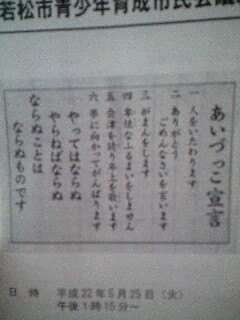 若松市青少年育成市民会議
あいづっこ宣言
一 人をいたわります
二 ありがとう
ごめんなさいを言います
三 がまんをします
四 卑怯なふるまいをしません
五 会津を誇り年上を敬います
六 夢に向かってがんばります
やってはならぬ
やらねばならぬ
ならぬことは
ならぬものです
日 時 平成22年5月25日（火）
午後1時15分～